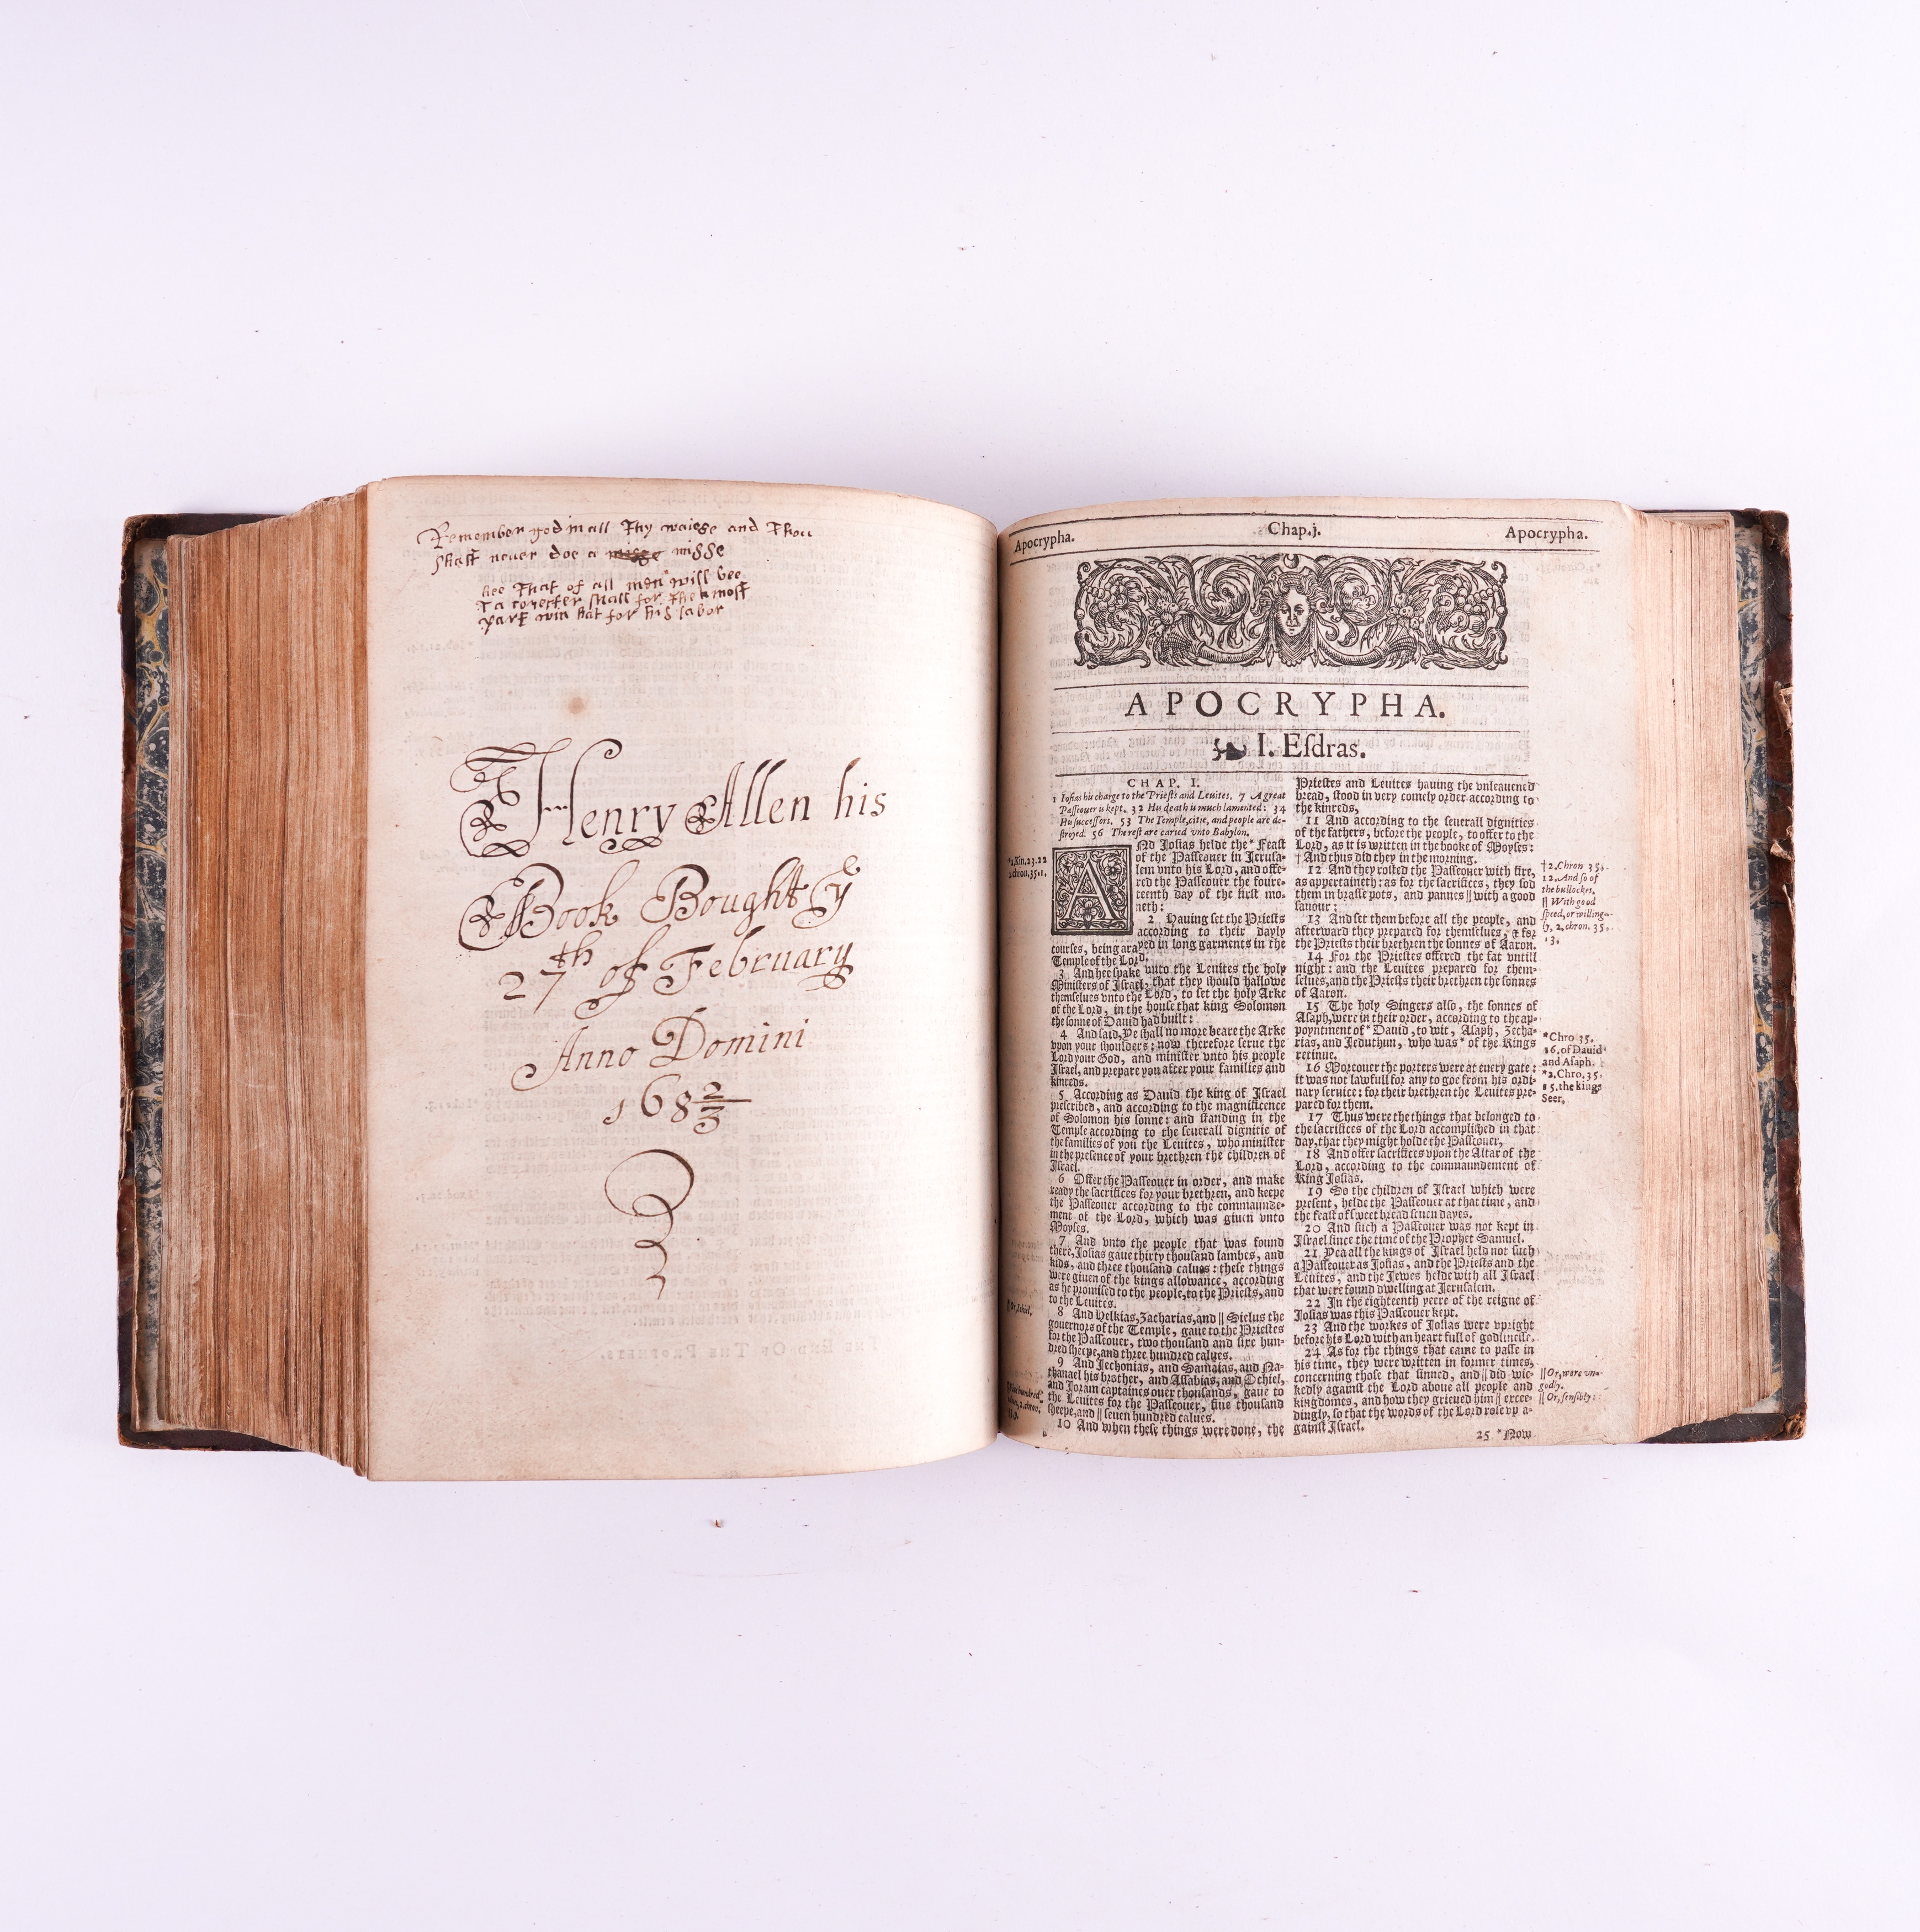 Remember god in all Thy waiese and Thou
shalt never doe a misse
hee That of all men will bee
shall for The most
part win hat for his labor
Henry Allen his
Book Bought yᵉ
27th of February
Anno Domini
168 2/3
Apocrypha. Chap.j. Apocrypha.
APOCRYPHA.
I. Eſdras.
CHAP. I.
1 Ioſias his charge to the Prieſts and Leuites. 7 A great
Paſſeouer is kept. 32 His death is much lamented: 34
His ſucceſſors. 53 The Temple, citie, and people are de-
ſtroyed. 56 The reſt are caried vnto Babylon.
*2.Kin.23.22
2.chron.35.1.
ANd Joſias helde the * Feaſt
of the Paſſeouer in Jeruſa-
lem vnto his Lord, and offe-
red the Paſſeouer the foure-
teenth day of the firſt mo-
neth:
2 Hauing ſet the Prieſts
according to their dayly
courſes, being arayed in long garments in the
Temple of the Lord.
3 And hee ſpake vnto the Leuites the holy
Miniſters of Iſrael, that they ſhould hallowe
themſelues vnto the Lord, to ſet the holy Arke
of the Lord, in the houſe that king Solomon
the ſonne of Dauid had built:
4 And ſaid, Ye ſhall no more beare the Arke
vpon your ſhoulders: now therefore ſerue the
Lord your God, and miniſter vnto his people
Iſrael, and prepare you after your families and
kinreds.
5 According as Dauid the king of Iſrael
preſcribed, and according to the magnificence
of Solomon his ſonne: and ſtanding in the
Temple according to the ſeuerall dignitie of
the families of you the Leuites, who miniſter
in the preſence of your brethren the children of
Iſrael.
6 Offer the Paſſeouer in order, and make
ready the ſacrifices for your brethren, and keepe
the Paſſeouer according to the commaunde-
ment of the Lord, which was giuen vnto
Moyſes.
7 And vnto the people that was found
there, Joſias gaue thirty thouſand lambes, and
kids, and three thouſand calues: theſe things
were giuen of the kings allowance, according
as he promiſed to the people, to the Prieſts, and
to the Leuites.
8 And Helkias, Zacharias, and || Sielus the
gouernors of the Temple, gaue to the Prieſtes
for the Paſſeouer, two thouſand and ſixe hun-
dred ſheepe, and three hundred calues.
9 And Jechonias, and Samaias, and Na-
thanael his brother, and Aſſabias, and Ochiel,
and Joram captaines ouer thouſands, gaue to
the Leuites for the Paſſeouer, fiue thouſand
ſheepe, and || ſeuen hundred calues.
10 And when theſe things were done, the
Prieſtes and Leuites hauing the vnleauened
bread, ſtood in very comely order according to
the kinreds,
11 And according to the ſeuerall dignities
of the fathers, before the people, to offer to the
Lord, as it is written in the booke of Moyſes:
† And thus did they in the morning.
12 And they roſted the Paſſeouer with fire,
as appertaineth: as for the ſacrifices, they ſod
them in braſſe pots, and pannes || with a good
ſauour:
13 And ſet them before all the people, and
afterward they prepared for themſelues, & for
the Prieſts their brethren the ſonnes of Aaron.
14 For the Prieſtes offered the fat vntill
night: and the Leuites prepared for them-
ſelues, and the Prieſts their brethren the ſonnes
of Aaron.
15 The holy Singers alſo, the ſonnes of
Aſaph, were in their order, according to the ap-
poyntment of * Dauid, to wit, Aſaph, Zecha-
rias, and Jeduthun, who was * of the Kings
retinue.
16 Moreouer the porters were at euery gate:
it was not lawfull for any to goe from his ordi-
nary ſeruice: for their brethren the Leuites pre-
pared for them.
17 Thus were the things that belonged to
the ſacrifices of the Lord accompliſhed in that
day, that they might holde the Paſſeouer,
18 And offer ſacrifices vpon the Altar of the
Lord, according to the commaundement of
King Joſias.
19 So the children of Iſrael which were
preſent, helde the Paſſeouer at that time, and
the feaſt of ſweet bread ſeuen dayes.
20 And ſuch a Paſſeouer was not kept in
Iſrael ſince the time of the Prophet Samuel.
21 Yea all the kings of Iſrael held not ſuch
a Paſſeouer as Joſias, and the Prieſts and the
Leuites, and the Jewes helde with all Iſrael
that were found dwelling at Jeruſalem.
22 In the eighteenth yeere of the reigne of
Joſias was this Paſſeouer kept.
23 And the workes of Joſias were vpright
before his Lord with an heart full of godlineſſe.
24 As for the things that came to paſſe in
his time, they were written in former times,
concerning thoſe that ſinned, and || did wic-
kedly againſt the Lord aboue all people and
kingdomes, and how they grieued him || excee-
dingly, ſo that the words of the Lord roſe vp a-
gainſt Iſrael.
25 * Now
† 2.Chron 35.
12. And ſo of
the bullockes.
|| With good
ſpeed, or willing-
ly, 2. chron. 35.
13.
*Chro 35.
16. of Dauid
and Aſaph.
*2.Chro.35.
15. the kings
Seer.
|| Or, were vn-
godly.
|| Or, ſenſibly: